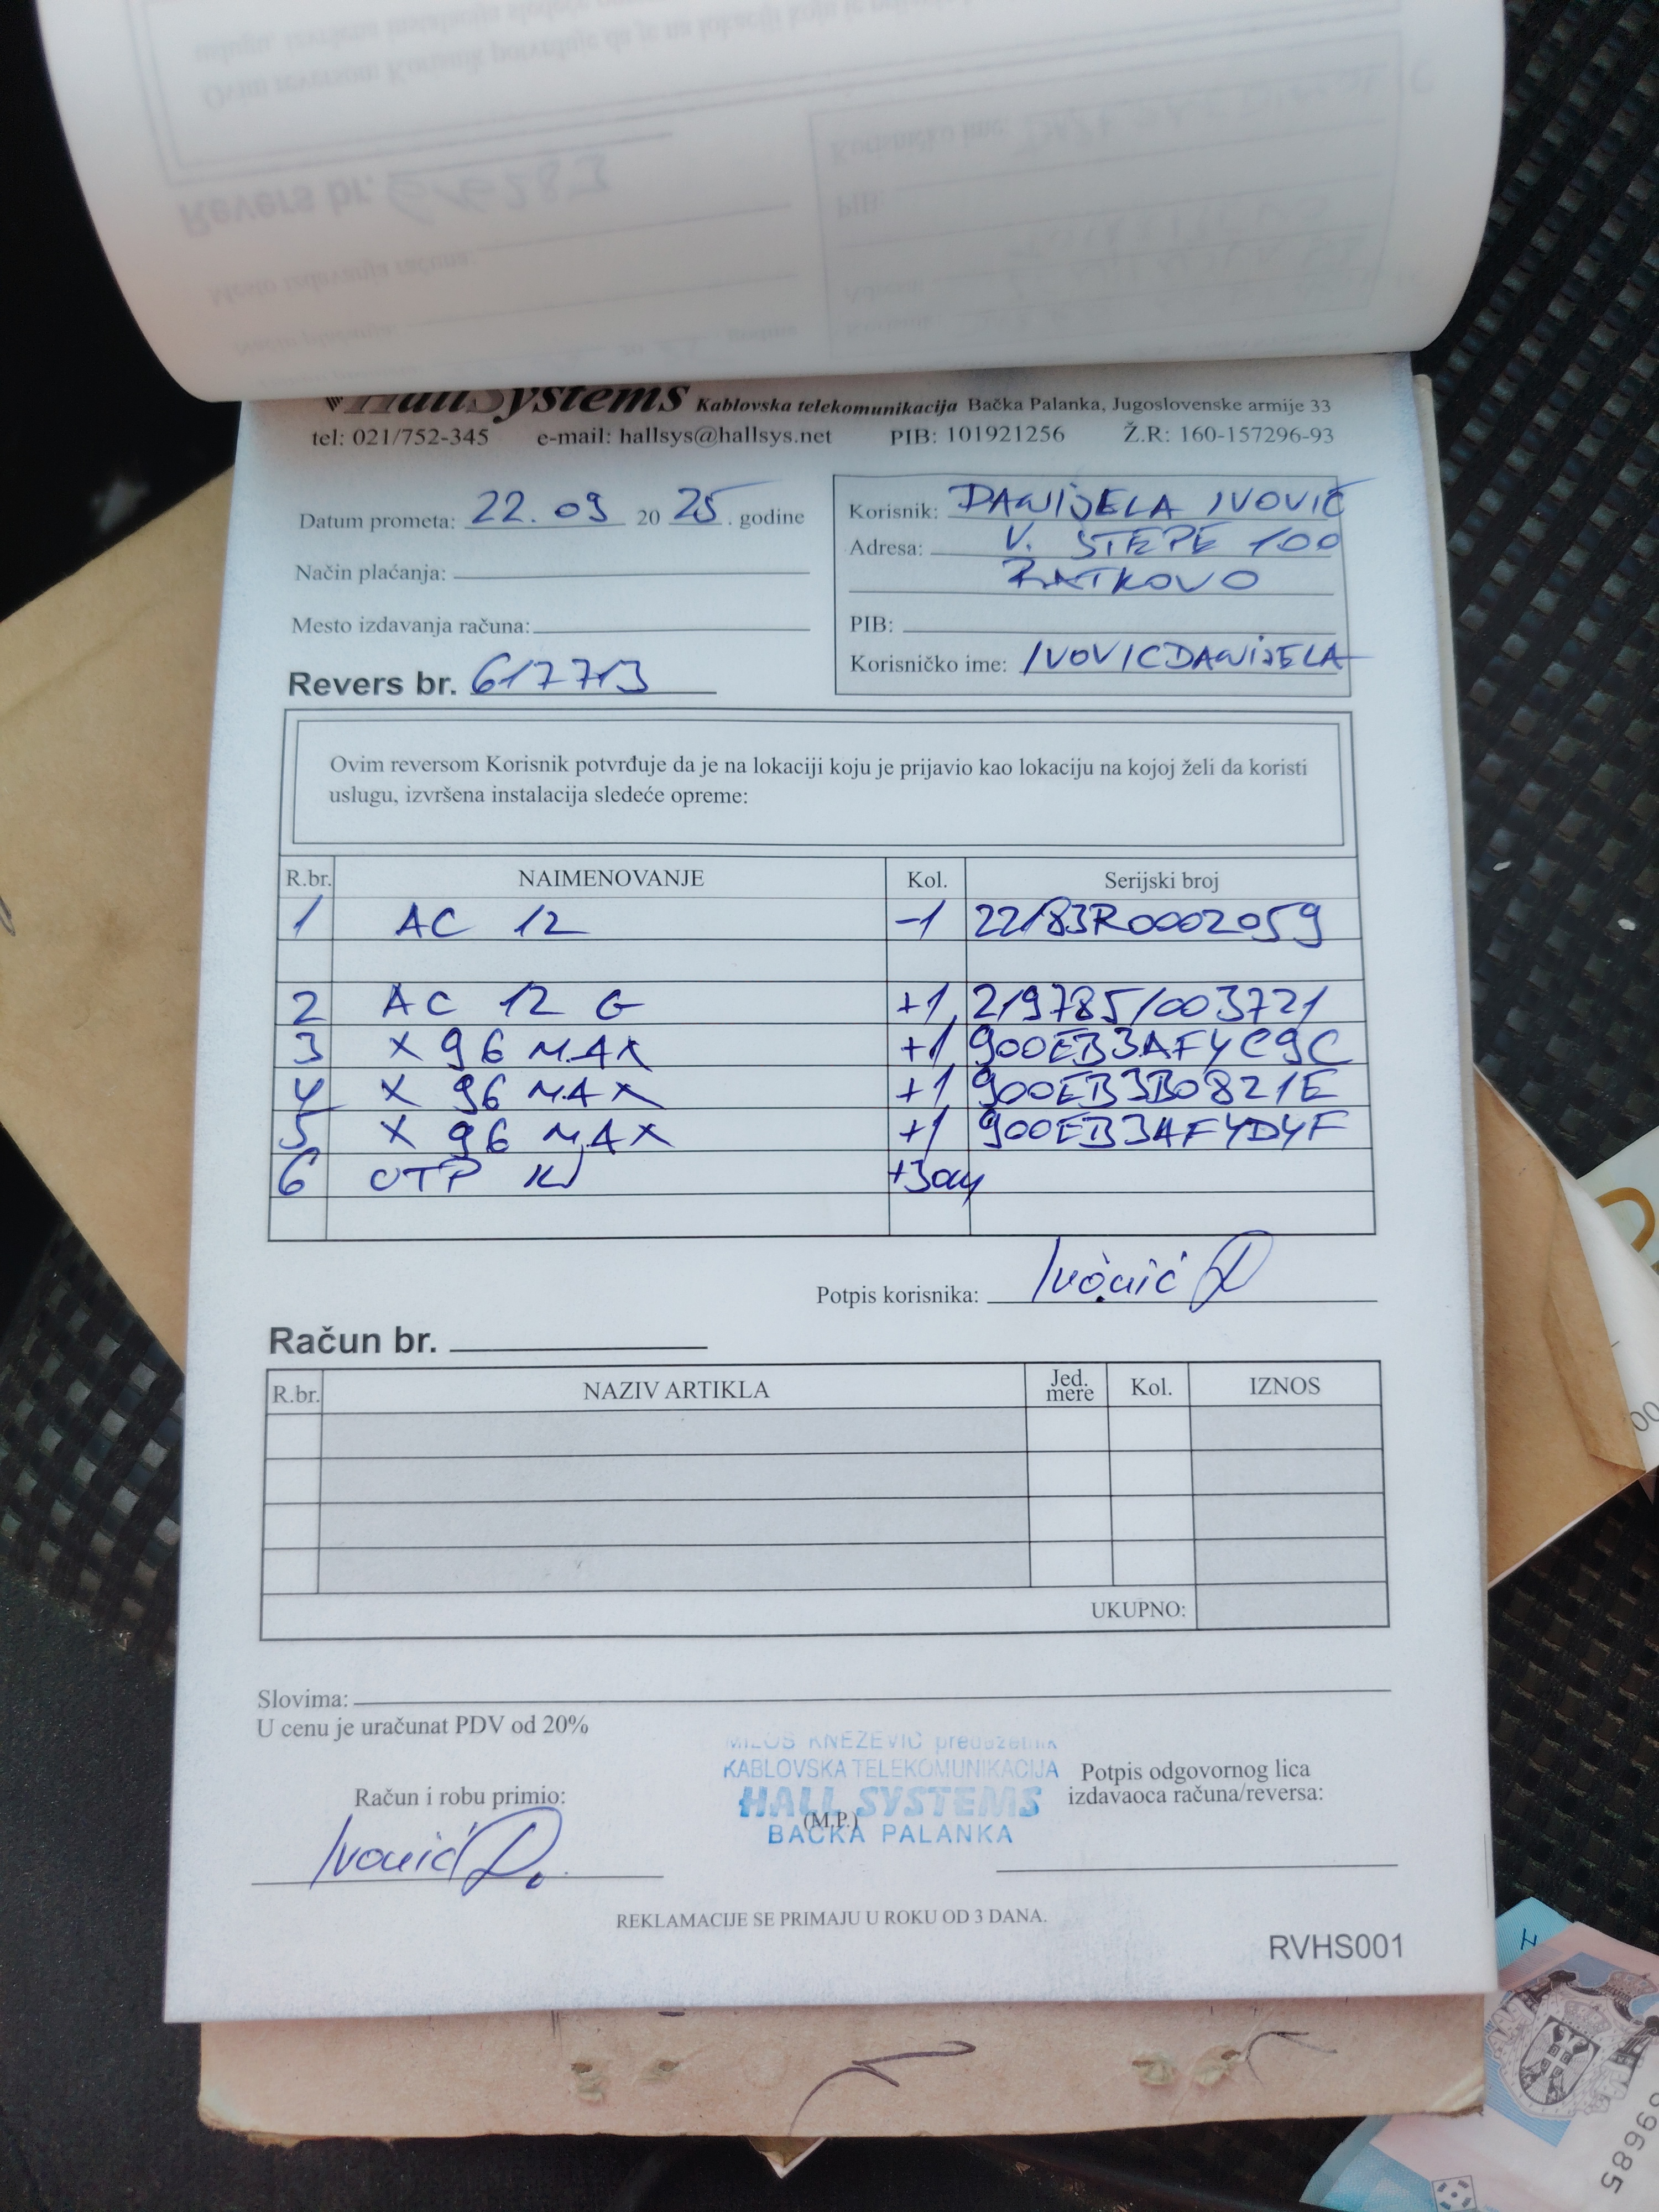 HallSystems Kablovska telekomunikacija Bačka Palanka, Jugoslovenske armije 33
tel: 021/752-345 e-mail: hallsys@hallsys.net PIB: 101921256 Ž.R: 160-157296-93
Datum prometa: 22.09 20 25. godine
Način plaćanja:
Mesto izdavanja računa:
Revers br. 617713
Korisnik: DANIJELA IVOVIĆ
Adresa: V. STEPE 100
RATKOVO
PIB:
Korisničko ime: IVOVICDANIJELA
Ovim reversom Korisnik potvrđuje da je na lokaciji koju je prijavio kao lokaciju na kojoj želi da koristi
uslugu, izvršena instalacija sledeće opreme:
R.br. NAIMENOVANJE Kol. Serijski broj
1 AC 12 -1 22183R0002059
2 AC 12 G +1 219785/003721
3 X 96 MAX +1 900EB3AF4C9C
4 X 96 MAX +1 900EB3B0821E
5 X 96 MAX +1 900EB3AF4D4F
6 UTP +30m
Potpis korisnika: Ivović D
Račun br.
R.br. NAZIV ARTIKLA Jed. mere Kol. IZNOS
UKUPNO:
Slovima:
U cenu je uračunat PDV od 20%
MILOŠ KNEŽEVIĆ preduzetnik
KABLOVSKA TELEKOMUNIKACIJA
HALL SYSTEMS
(M.P.)
BAČKA PALANKA
Račun i robu primio:
Ivović D.
Potpis odgovornog lica
izdavaoca računa/reversa:
REKLAMACIJE SE PRIMAJU U ROKU OD 3 DANA.
RVHS001